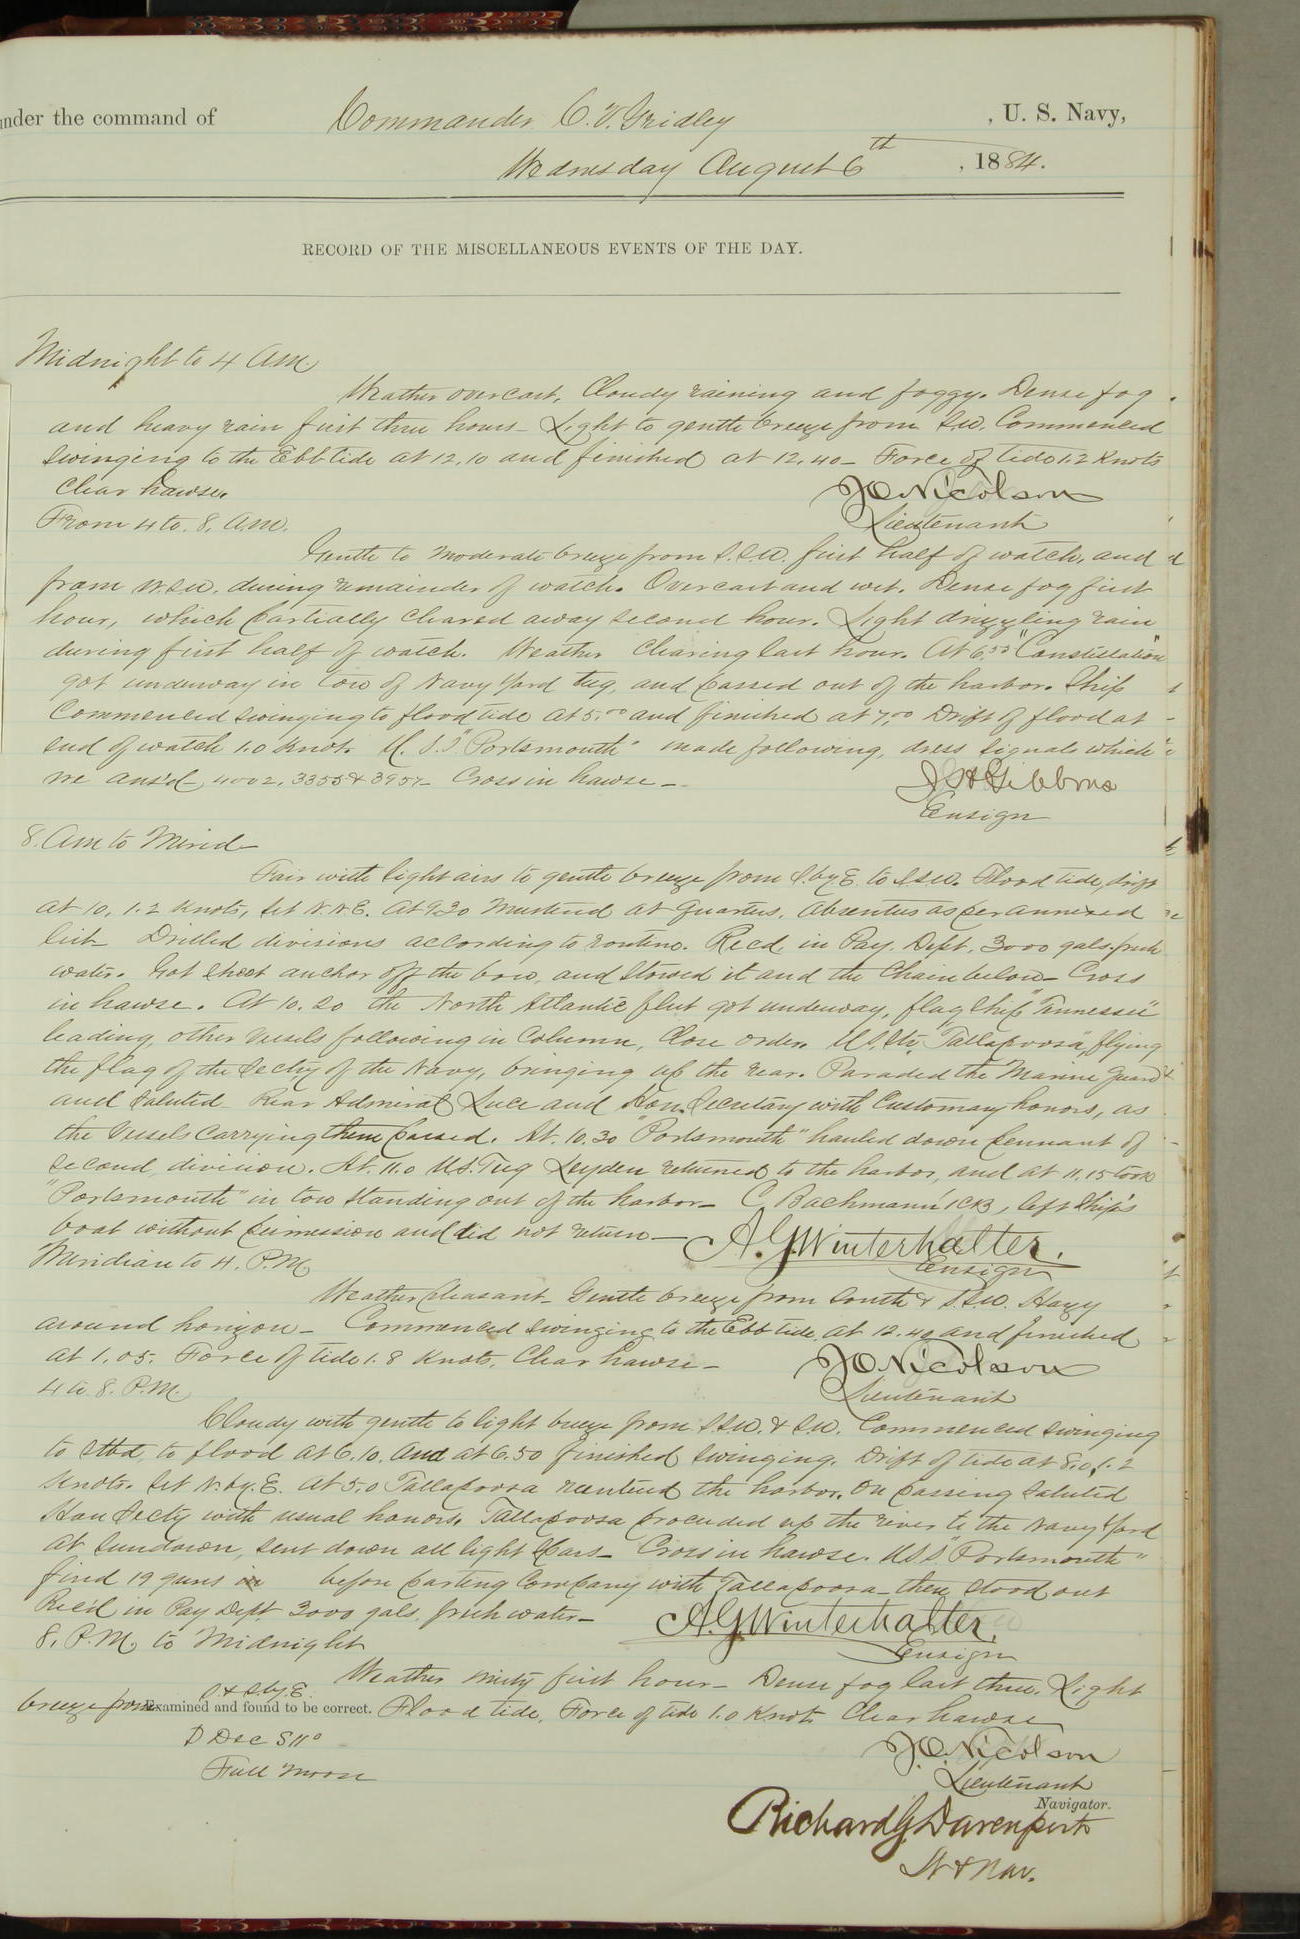 under the command of Commander C. V. Gridley , U. S. Navy,
Wednesday August 6th , 1884.
RECORD OF THE MISCELLANEOUS EVENTS OF THE DAY.
Midnight to 4 Am
Weather overcast, Cloudy raining and foggy. Dense fog
and heavy rain first three hours – Light to gentle breeze from S.W. Commenced
swinging to the Ebb tide at 12.10 and finished at 12.40 – Force of tide 1.2 Knots
Clear hawse.
J O Nicolson
Lieutenant
From 4 to 8. A.M.
Gentle to moderate breeze from S.S.W. first half of watch, and
from W.S.W. during remainder of watch. Overcast and wet. Dense fog first
hour, which partially cleared away second hour. Light drizzling rain
during first half of watch. Weather clearing last hour. At 6.55 "Constellation"
got underway in tow of Navy Yard tug, and passed out of the harbor. Ship
Commenced swinging to flood tide at 5.00 and finished at 7.00 Drift of flood at
end of watch 1.0 Knot. U.S.S. "Portsmouth" made following, dress signals which
we ans'd – 4002, 3355 & – Cross in hawse –
J H Gibbons
Ensign
8. Am to Merid –
Fair with light airs to gentle breeze from S.by.E. to S.S.W. Flood tide, drift
at 10, 1.2 Knots, set N.N.E. At 9.30 Mustered at Quarters. Absentees as per annexed
list – Drilled divisions according to routine. Rec'd. in Pay. Dept. 3000 gals. fresh
water. Got sheet anchor off the bow, and stowed it and the Chain below – Cross
in hawse. At 10.20 the North Atlantic fleet got underway, flag ship "Tennessee"
leading, other vessels following in Column, Close order. U.S.Str. "Tallapoosa", flying
the flag of the Sec'ty of the Navy, bringing up the rear. Paraded the Marine Guard
and saluted Rear Admiral Luce and Hon. Secretary with Customary honors, as
the vessels carrying them passed. At. 10.30 "Portsmouth" hauled down pennant of
second division. At. 11.0 U.S. Tug Leyden returned to the harbor, and at 11.15 took
"Portsmouth" in tow standing out of the harbor – C. Bachmann, 1CB, left Ship's
boat without permission and did not return –
A. G. Winterhalter.
Ensign
Meridian to 4. P.M.
Weather pleasant – Gentle breeze from South & S.S.W. Hazy
around horizon – Commenced swinging to the Ebb tide at 12.40 and finished
at 1.05. Force of tide 1.8 Knots. Clear hawse –
J O Nicolson
Lieutenant
4 to 8. P.M.
Cloudy with gentle to light breeze from S.S.W. & S.W. Commenced swinging
to stbd. to flood at 6.10. And at 6.50 finished swinging. Drift of tide at 8.0, 1.2
Knots. Set N.by.E. At 5.0 Tallapoosa reentered the harbor. On passing saluted
Hon Secty with usual honors. Tallapoosa proceeded up the river to the Navy Yard
At Sundown, sent down all light spars – Cross in hawse. U.S.S. Portsmouth"
fired 19 guns in before parting Company with Tallapoosa – then stood out
Rec'd in Pay Dept 3000 gals. fresh water –
A. G. Winterhalter.
Ensign
8. P.M. to Midnight
Weather misty first hour – Dense fog last three. Light
breeze from S & S.by.E. Flood tide. Force of tide 1.0 Knot. Clear hawse
Examined and found to be correct.
J. O. Nicolson
Lieutenant
Full Moon
Navigator.
Richard G. Davenport
Lt & Nav.